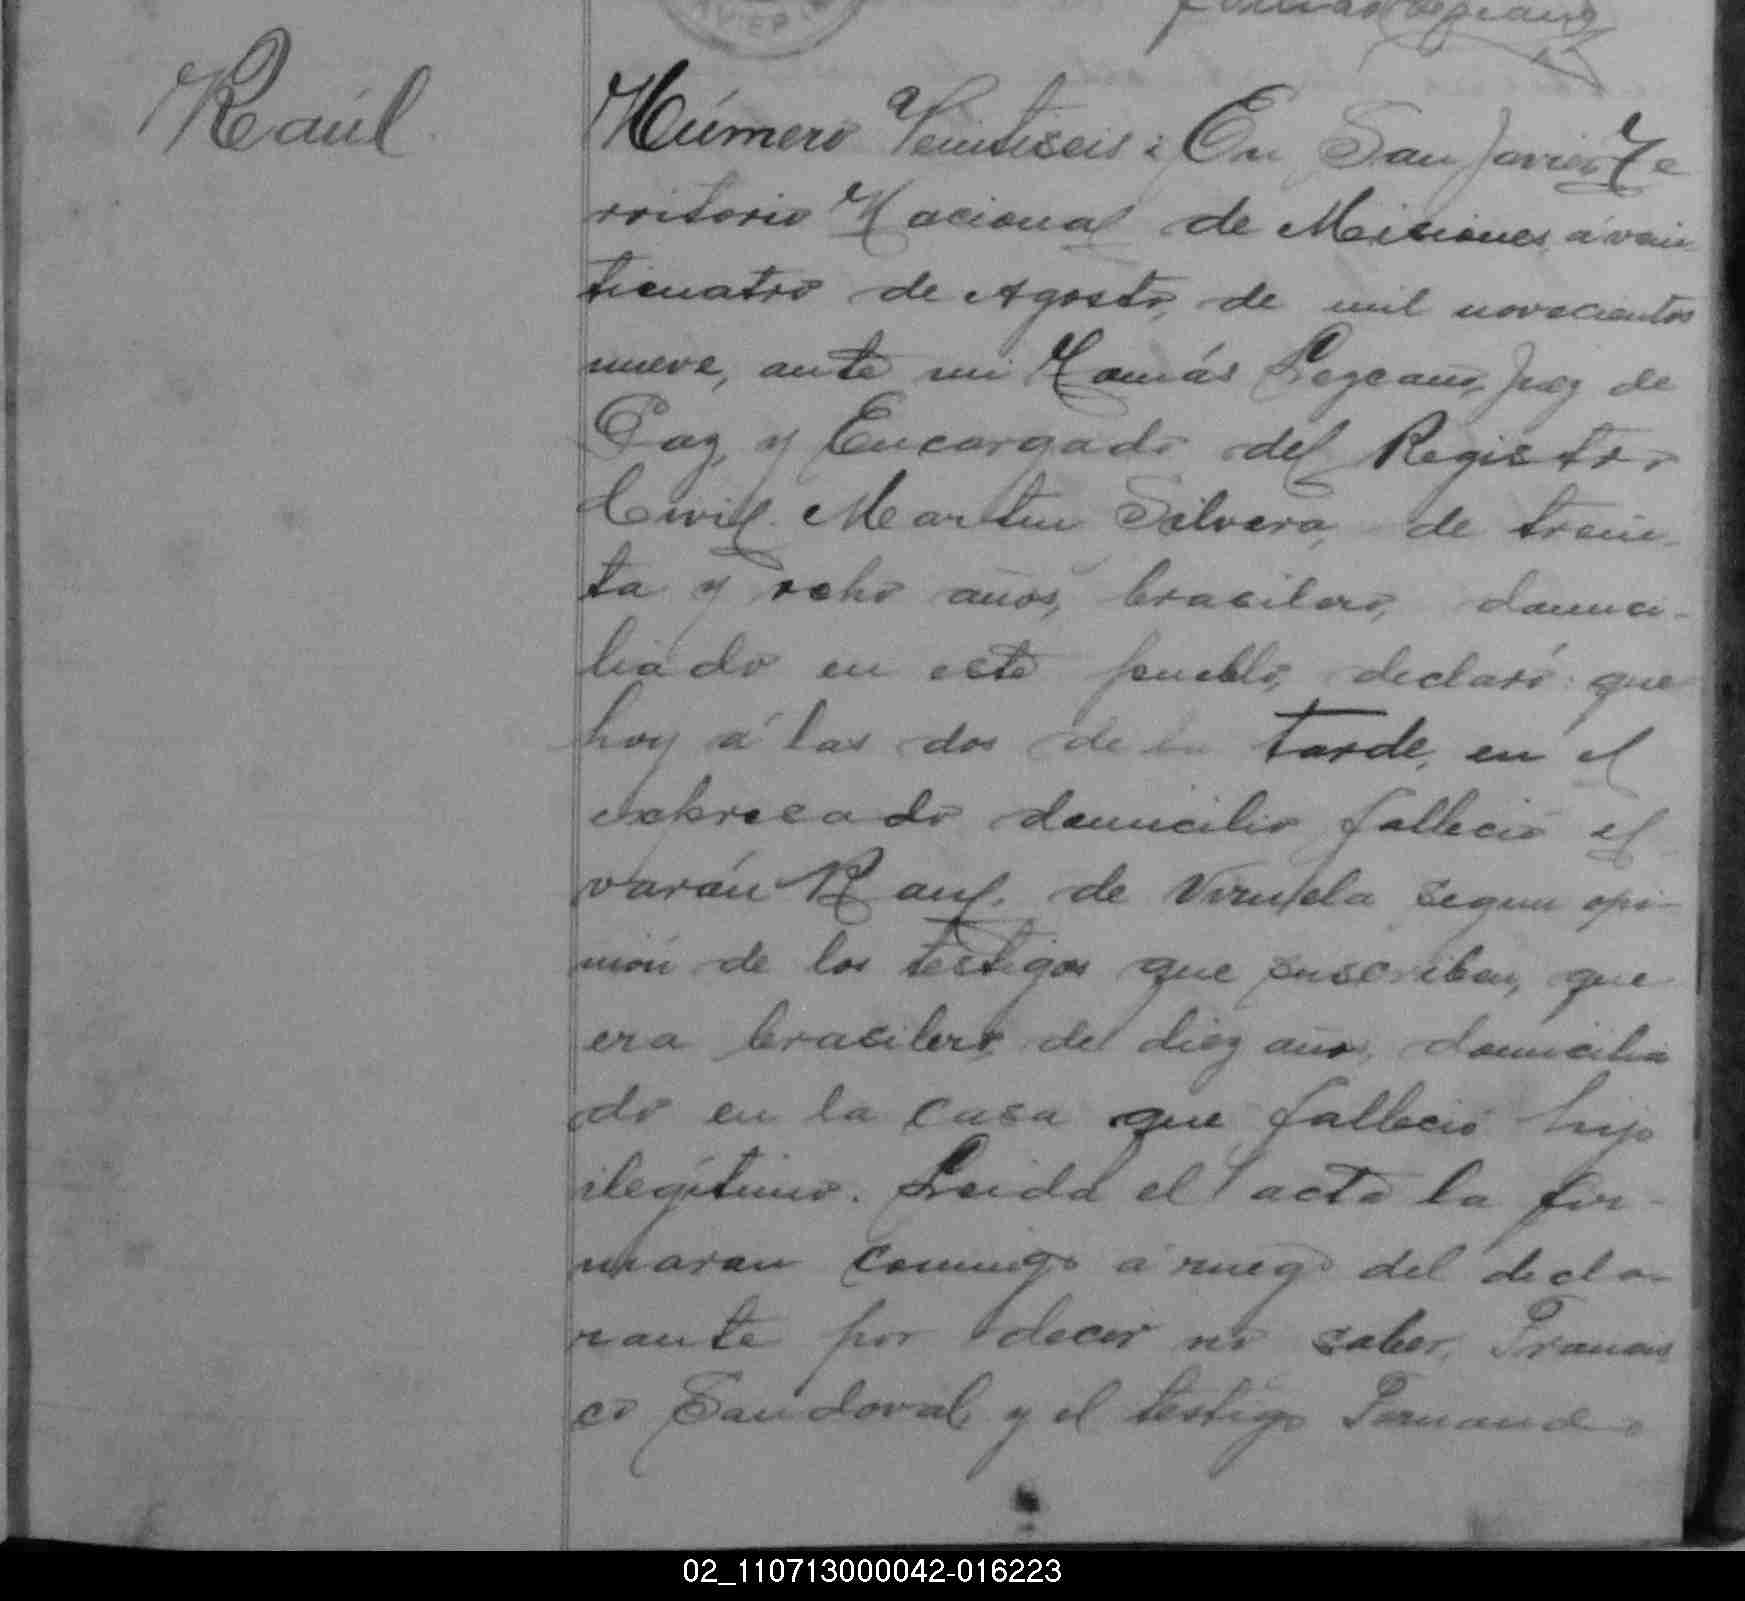 Raúl
Número Veintiseis: En San Javier, Te
rritorio Nacional de Misiones á vein
ticuatro de Agosto, de mil novecientos
nueve, ante mi Tomás Lezcano, Juez de
Paz, y Encargado del Registro
Civil. Martin Silvera, de trein-
ta y ocho años, brasilero, domici-
liado en este pueblo, declaró: que
hoy á las dos de la tarde, en el
expresado domicilio falleció el
varón Raul, de Viruela segun opi-
nión de los testigos que suscriben, que
era brasilero de diez años, domicilia
do en la casa que falleció hijo
ilegítimo. Leida el acta la fir-
maron conmigo á ruego del decla-
rante por decir no saber, Francis
co Sandoval, y el testigo Fernando
02_110713000042-016223